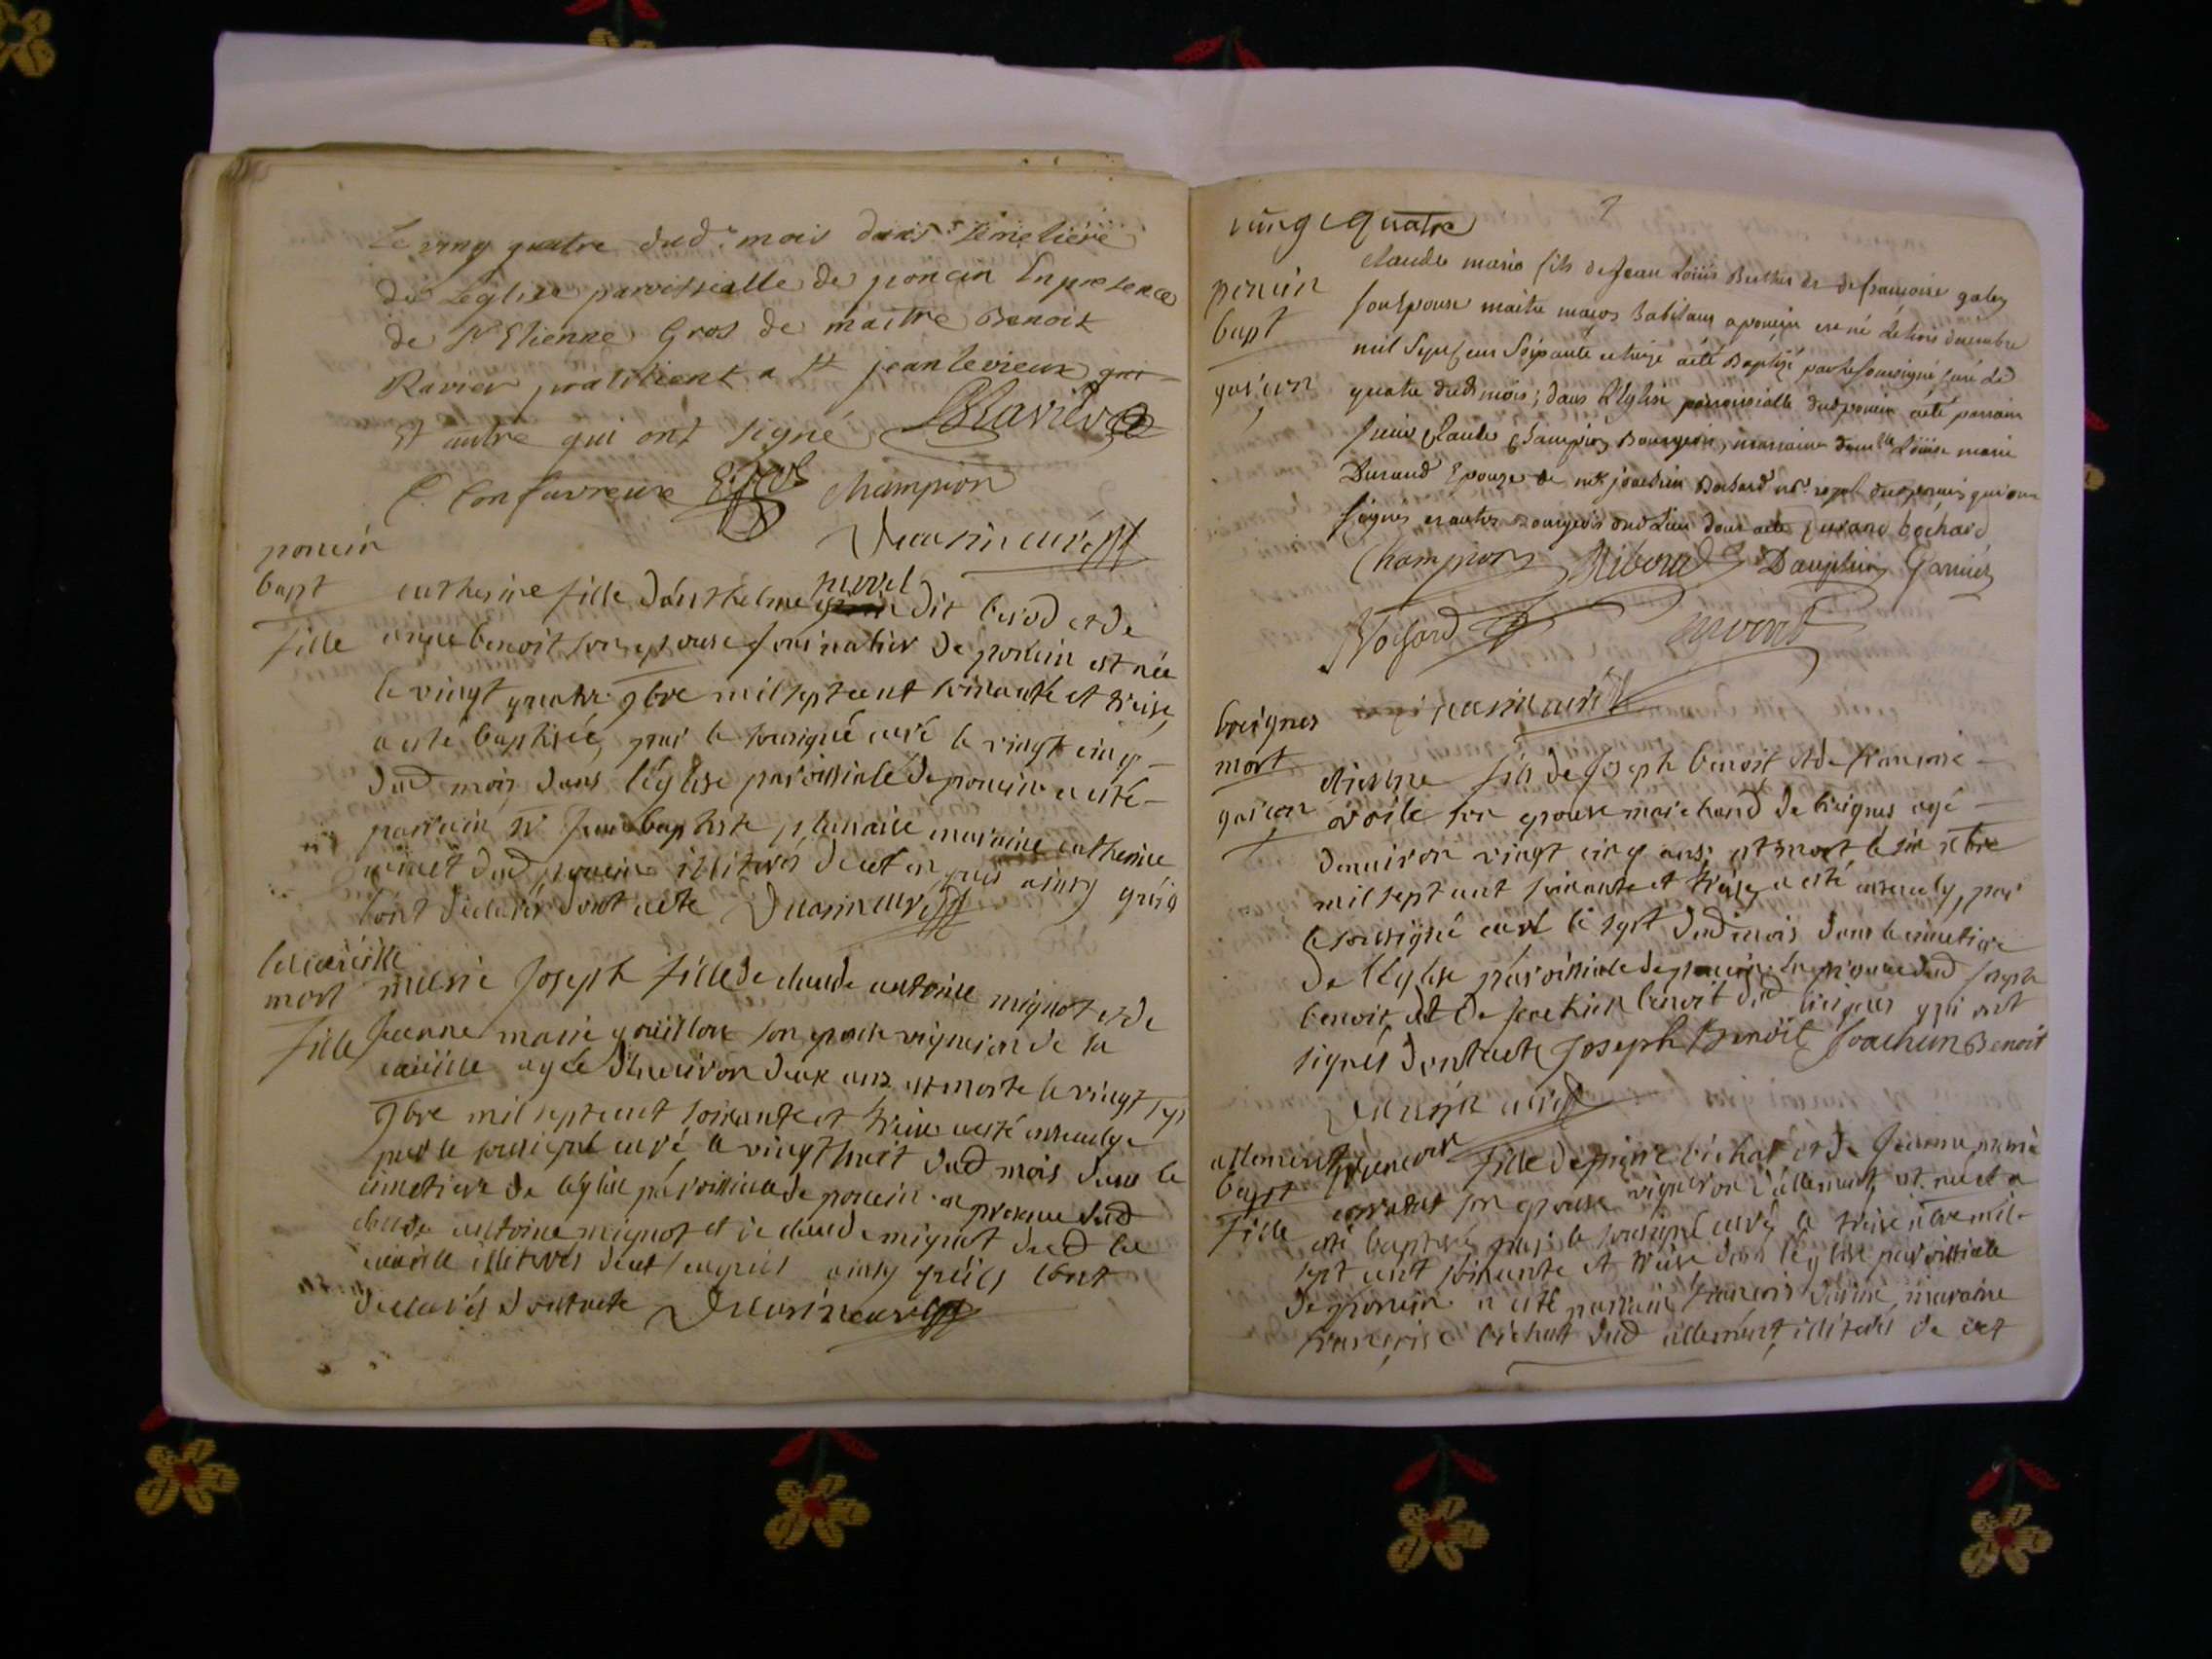 Le vingt quatre dud. mois dans semetiere
de Leglise paroissialle de poncin En presence
de Sr Etienne Gros de maitre Benoit
Ravier pratitient a St jean levieux qui
Et autre qui ont signé BRavier
C. Confavreux EGros Champion
curé
poncin
bapt
fille
catherine fille danthelme dit berod et de
anne benoit son epouse de poncin est née
le vingt quatre 9bre mil sept cent soixante et treise
a esté baptisée par le sousigné curé le vingt cinq
dud mois dans léglise paroissiale de poncin a esté
parrain sr Jean baptiste maraine catherine
dud poncin illiterés de cet enquis ainsy qu'ils
lont declarés dont acte curé
la cueille
mort
fille
marie Joseph fille de claude antoine mignot et de
Jeanne marie gouillon son epouse vigneron de la
cueille agée denviron deux ans est morte le vingt sept
9bre mil sept cent soixante et treise a esté ensevelye
par le sousigné curé le vingt huit dud mois dans le
cimetiere de léglise paroissiale de poncin en presence dud
claude antoine mignot et de claude mignot dud la
cueille illiterés de cet enquis ainsy qu'ils lont
declarés dont acte curé
vingt quatre
poncin
bapt
garçon
Claude marie fils de Jean Louis et de françoise
son Epouse maitre maçon habitant a poncin est né le trois decembre
mil Sept Cent Soixante et treize a été Baptizé par le Soussigné Curé le
quatre dud mois; dans l'Eglise parroissialle dud poncin a été parrain
sieur Claude Champion Bourgeois, marraine demlle Louise marie
Durand Epouze de me joachin Bochard nre royal dud poncin qui ont
signés et autres Bourgeois dud Lieu dont acte Durand bochard
Champion Riboud Dauphin Garnier
Bochard
curé
breignes
mort
garçon
etienne fils de Joseph benoit et de francoise
son epouse marchand de breignes agé
denviron vingt cinq ans est mort le six xbre
mil sept cent soixante et treise a esté ensevely par
le sousigné curé le sept dud mois dans le cimetiere
de léglise paroissiale de poncin en presence dud Joseph
benoit et de Joachim benoit dud breignes qui ont
signés dont acte Joseph Benoit Joachim Benoit
curé
allement
bapt
fille
fille de pierre bichat et de Jeanne marie
son epouse vigneron d'allement est née et a
esté baptisée par le sousigné curé le treise xbre mil
sept cent soixante et treise dans léglise paroissiale
de poncin a esté parrain francois maraine
francoise bichat dud allement illiterés de cet